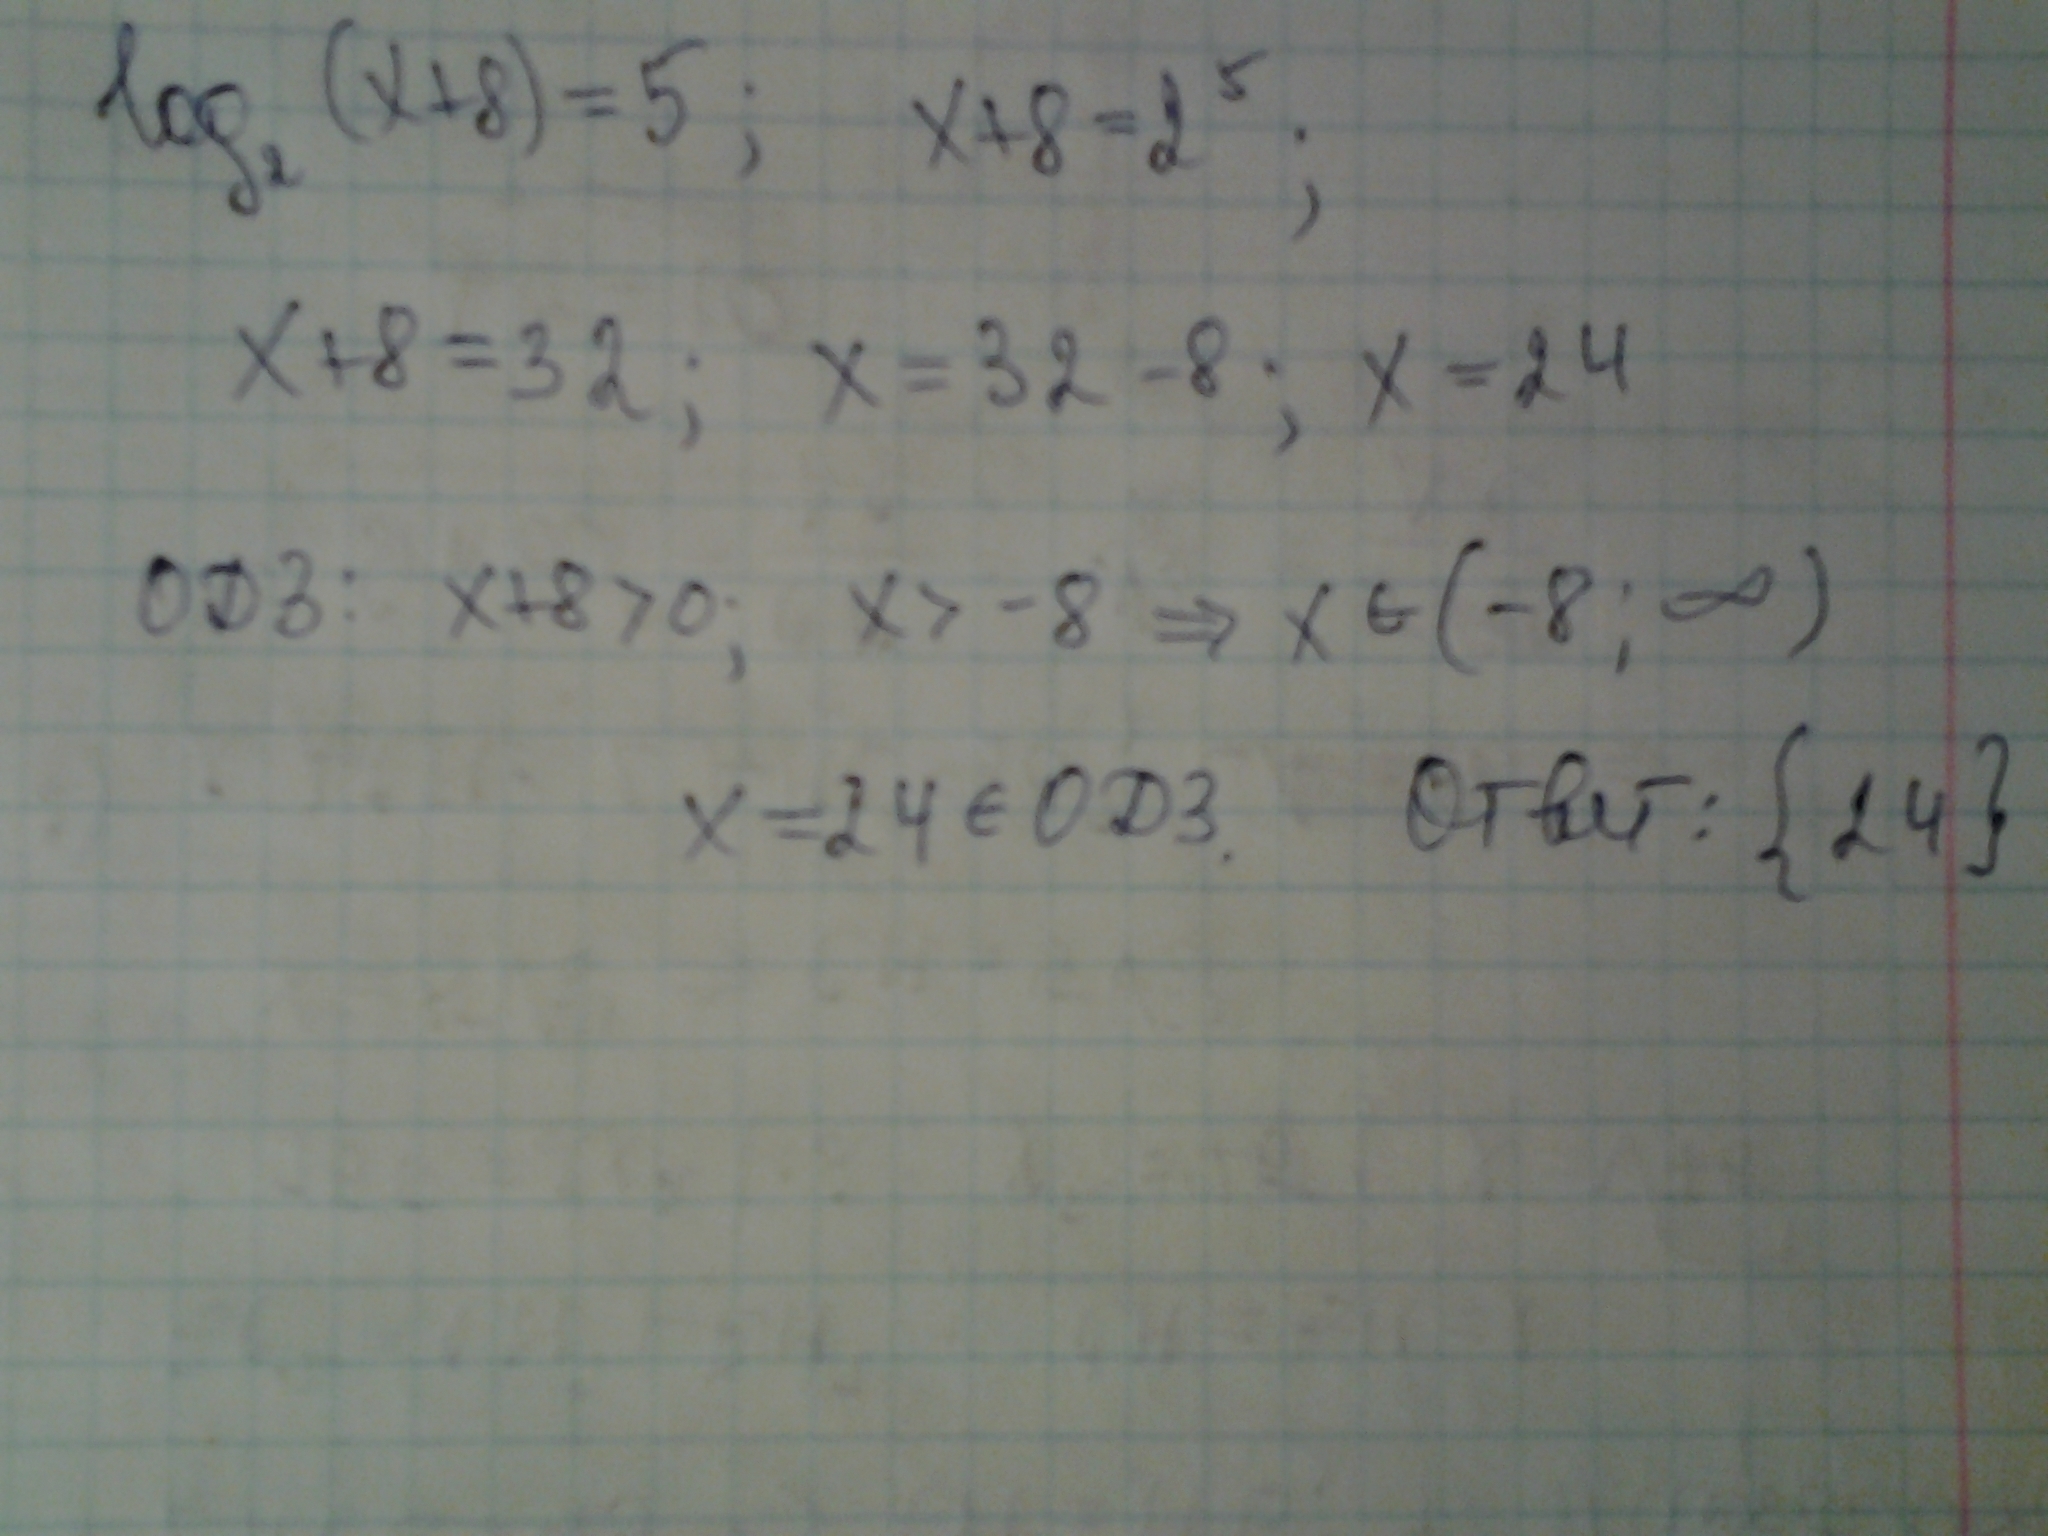 log₂ (x+8) = 5; x+8 = 2⁵;
x+8 = 32; x = 32 - 8; x = 24
ОДЗ: x+8>0; x> -8 ⇒ x ∈ (-8; ∞)
x = 24 ∈ ОДЗ. Ответ: {24}